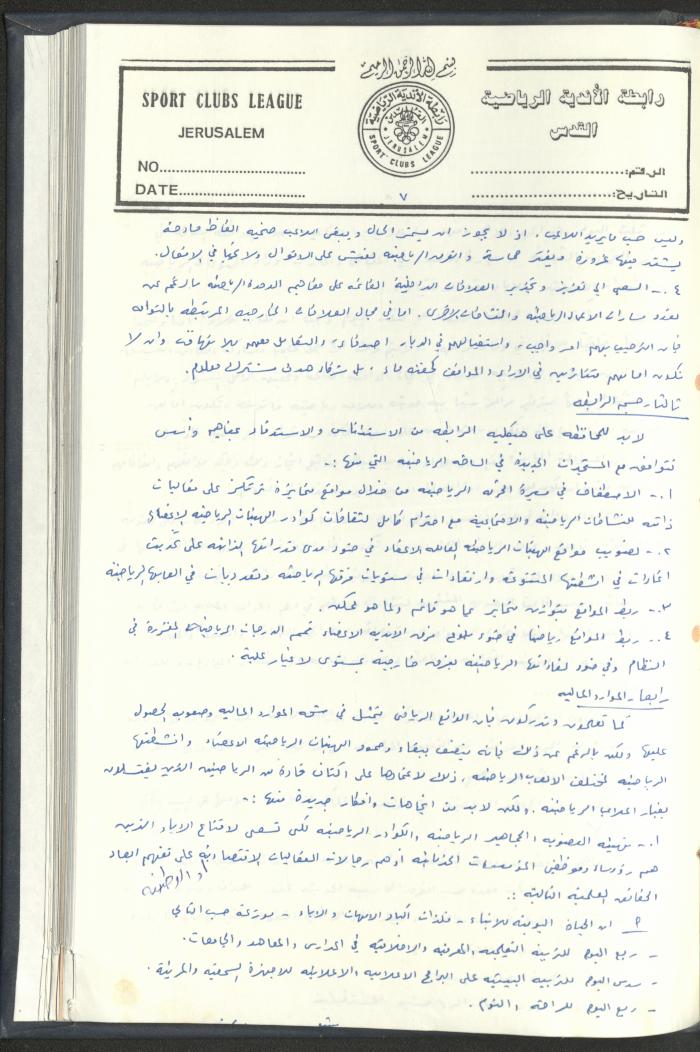 بسم الله الرحمن الرحيم
SPORT CLUBS LEAGUE
JERUSALEM
NO
DATE
رابطة الأندية الرياضية
القدس
الرقم:
التاريخ:
رابطة الأندية الرياضية
القدس
JERUSALEM
SPORT CLUBS LEAGUE
٧
وليس حسب ما يريد اللاعب. اذ لا يجوز ان يستمر الحال ويبقى اللاعب ضحية الفاظ مادحة
يشتد فيها غروره ويفتر حماسه والفرق الرياضية تعيش على الاقوال ولا تحيا في الافعال.
٤.- السعي الى تعزيز العلاقات الداخلية القائمة على مفاهيم الوحدة الرياضية بالرغم من
تعدد مسارات الرياضية والثقافات الاخرى. اما في مجال العلاقات الخارجية المرتبطة بالتوأمة
فإن الترحيب بهم امر واجب، واستقبالهم في الديار اصدقاء، والتعامل معهم بلا تهافت وان لا
نكون امامهم متناثرين في الاراء والمواقف، بل شركاء مشترك معلوم.
ثالثا: جسم الرابطة
لابد للمحافظة على هيكلية الرابطة من الاستئناس والاسترشاد بمفاهيم وأسس
تتوافق مع المستجدات الجديدة في الساحة الرياضية التي منها:-
١.- الاصطفاف في مسيرة الحركة الرياضية من خلال مواقع متمايزة ترتكز على فعاليات
ذاتية للنشاطات الرياضية والاجتماعية مع احترام كامل لثقافات كوادر الهيئات الرياضية الاعضاء
٢.- تصويب مواقع الهيئات الرياضية الفاعلة الاعضاء في ضوء مدى قدراتها الذاتية على تحديث
انجازات في انشطتها المتنوعة وارتقاءات في مستويات فرقها الرياضية وتعدديات في العابها الرياضية
٣.- ربط المواقع بتوازن متمايز بما هو قائم ولما هو ممكن.
٤.- ربط المواقع رياضيا في ضوء بلوغ فرق الاندية الاعضاء قمم الدرجات الرياضية المقررة في
النظام وفي ضوء لقاءاتها الرياضية بفرق خارجية بمستوى لاعبات محلية.
رابعا: الموارد المالية
كما تعلمون وتدركون فإن الواقع الرياضي يتمثل في شح الموارد المالية وصعوبة الحصول
عليها ولكن بالرغم من ذلك فإنه يتصف ببقاء وصمود الهيئات الرياضية الاعضاء وانشطتها
الرياضية لمختلف الالعاب الرياضية. وذلك لاعتمادها على اكتاف قادة من الرياضيين الذين يغتسلون
بغبار الملاعب الرياضية. ولكن لابد من اتجاهات وافكار جديدة منها:-
١.- تهيئة العضوية والجماهير الرياضية والكوادر الرياضية لكي تسعى لاقناع الاباء الذين
هم رؤساء وموظفين المؤسسات الخدماتية أو هم رجالات الفعاليات الاقتصادية على تفهم ابعاد
او الوطنية
الحقائق العلمية التالية:-
أ ان الحياة اليومية للابناء - فلذات أكباد الامهات والاباء - موزعة حسب التالي
- ربع اليوم للتربية التعليمية والمعرفية والاخلاقية في المدارس والمعاهد والجامعات.
- سدس اليوم للتربية البيتية على البرامج الاعلامية والاعلانية للاجهزة السمعية والمرئية.
- ربع اليوم للراحة والنوم.